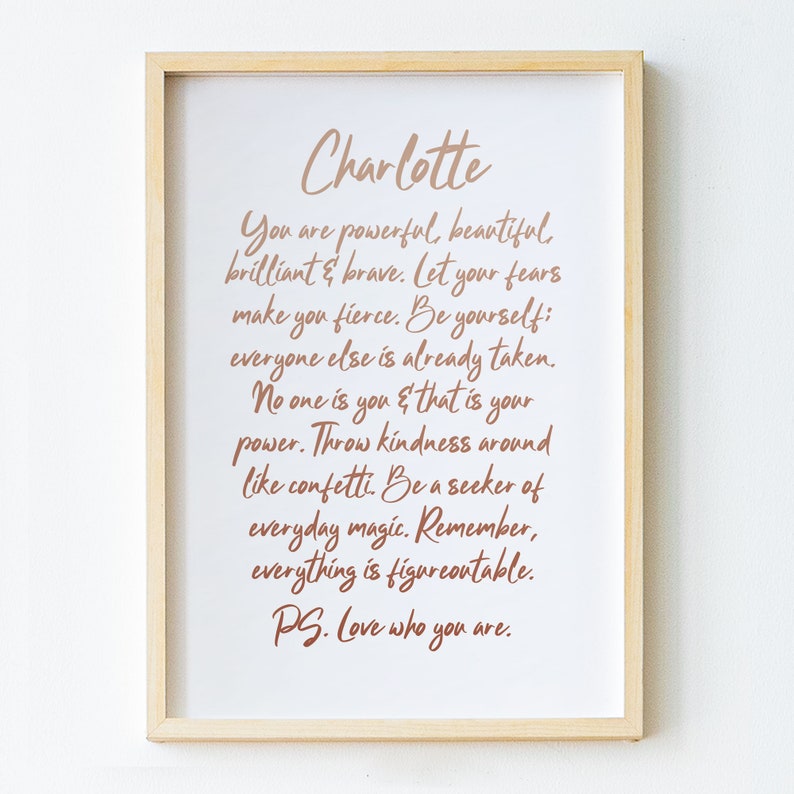 Charlotte
You are powerful, beautiful,
brilliant & brave. Let your fears
make you fierce. Be yourself;
everyone else is already taken.
No one is you & that is your
power. Throw kindness around
like confetti. Be a seeker of
everyday magic. Remember,
everything is figureoutable.
PS. Love who you are.